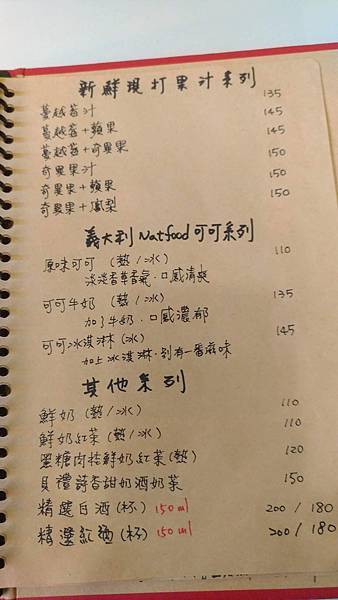 新鮮現打果汁系列
蔓越莓汁 135
蔓越莓+蘋果 145
蔓越莓+奇異果 145
奇異果汁 150
奇異果+蘋果 150
奇異果+鳳梨 150
義大利 Natfood 可可系列
原味可可 (熱/冰) 110
淡淡香草香氣.口感清爽
可可牛奶 (熱/冰) 135
加了牛奶.口感濃郁
可可冰淇淋 (冰) 145
加上冰淇淋.別有一番滋味
其他系列
鮮奶 (熱/冰) 110
鮮奶紅茶 (熱/冰) 110
黑糖肉桂鮮奶紅茶 (熱) 120
貝禮詩香甜奶酒奶茶 150
精選白酒 (杯) 150ml 200 / 180
精選紅酒 (杯) 150ml 200 / 180